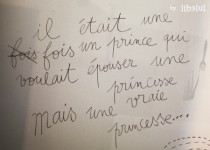 by libstud
il était une
fois fois un prince qui
voulait épouser une
princesse
mais une vraie
princesse....